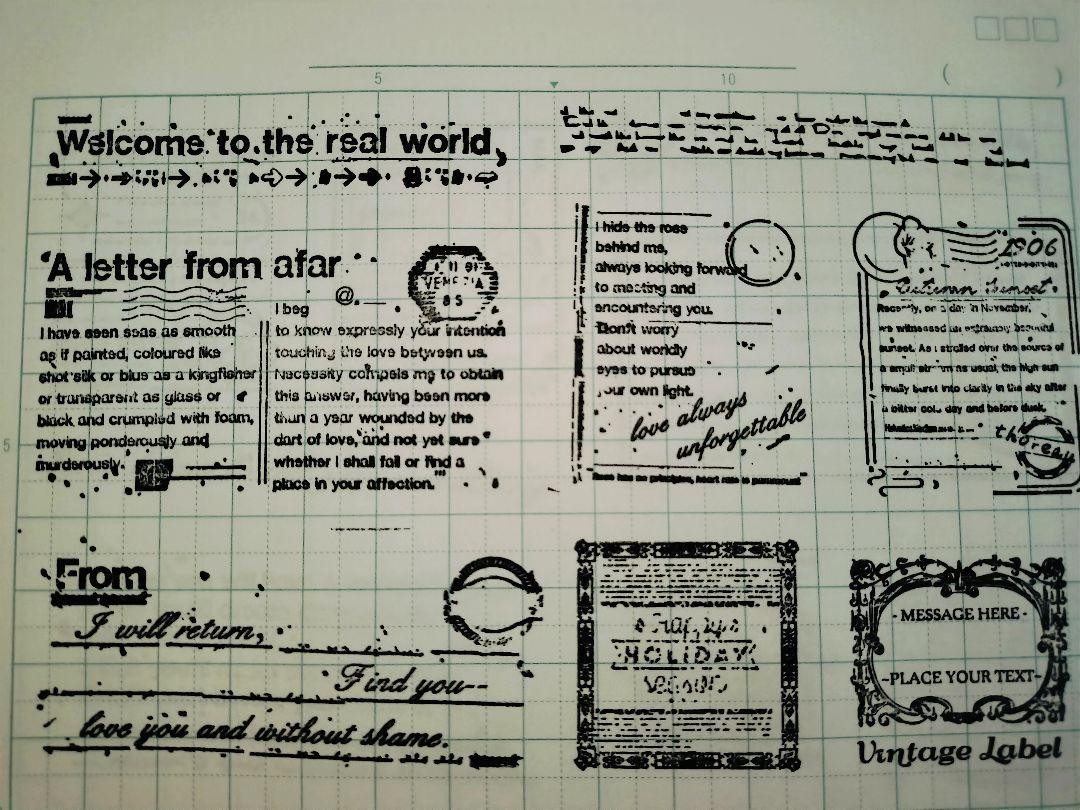 5
10
( )
Welcome to the real world,
'A letter from afar
VENEZIA
85
@.
I have seen seas as smooth
as if painted, coloured like
shot silk or blue as a kingfisher
or transparent as glass or
black and crumpled with foam,
moving ponderously and
murderously.
I beg
to know expressly your intention
touching the love between us.
Necessity compels me to obtain
this answer, having been more
than a year wounded by the
dart of love, and not yet sure
whether I shall fail or find a
place in your affection."
I hide the rose
behind me,
always looking forward
to meeting and
encountering you.
Don't worry
about worldly
eyes to pursue
your own light.
love always
unforgettable
has no principles, heart rate is paramount
1906
Autumn Sunset
Recently, on a day in November,
we witnessed an extremely beautiful
sunset. As I strolled over the source of
a small stream as usual, the high sun
finally burst into clarity in the sky after
a bitter cold day and before dusk,
thoreau
5
From
I will return,
Find you--
love you and without shame.
HOLIDAY
- MESSAGE HERE -
-PLACE YOUR TEXT-
Vintage Label